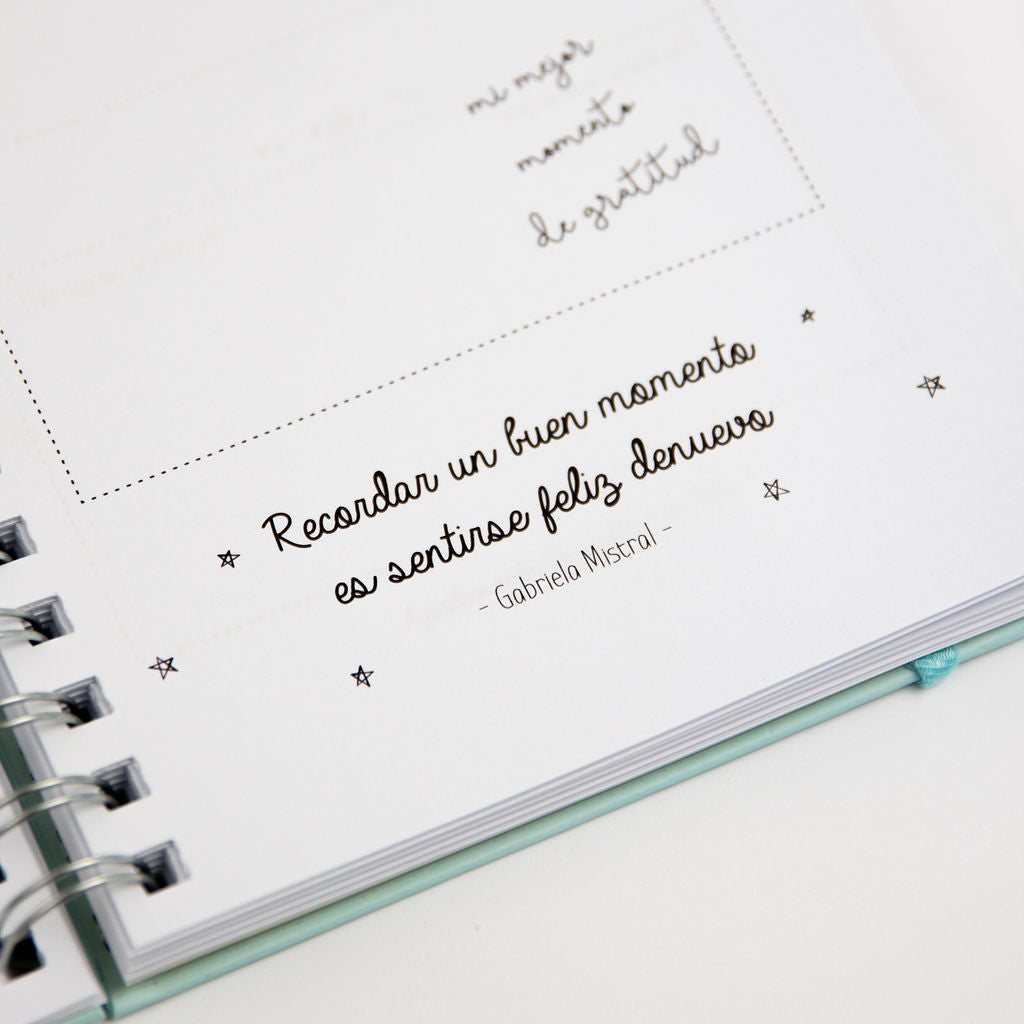 mi mejor
momento
de gratitud
Recordar un buen momento
es sentirse feliz denuevo
- Gabriela Mistral -